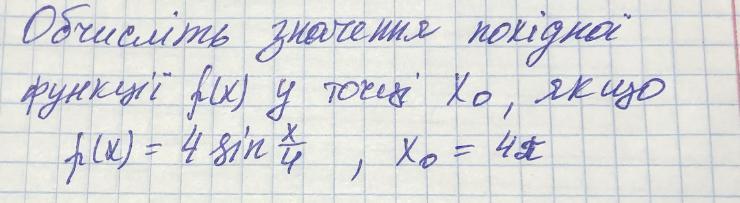 Обчисліть значення похідної
функції f(x) у точці x₀, якщо
f(x) = 4 sin x/4 , x₀ = 4π